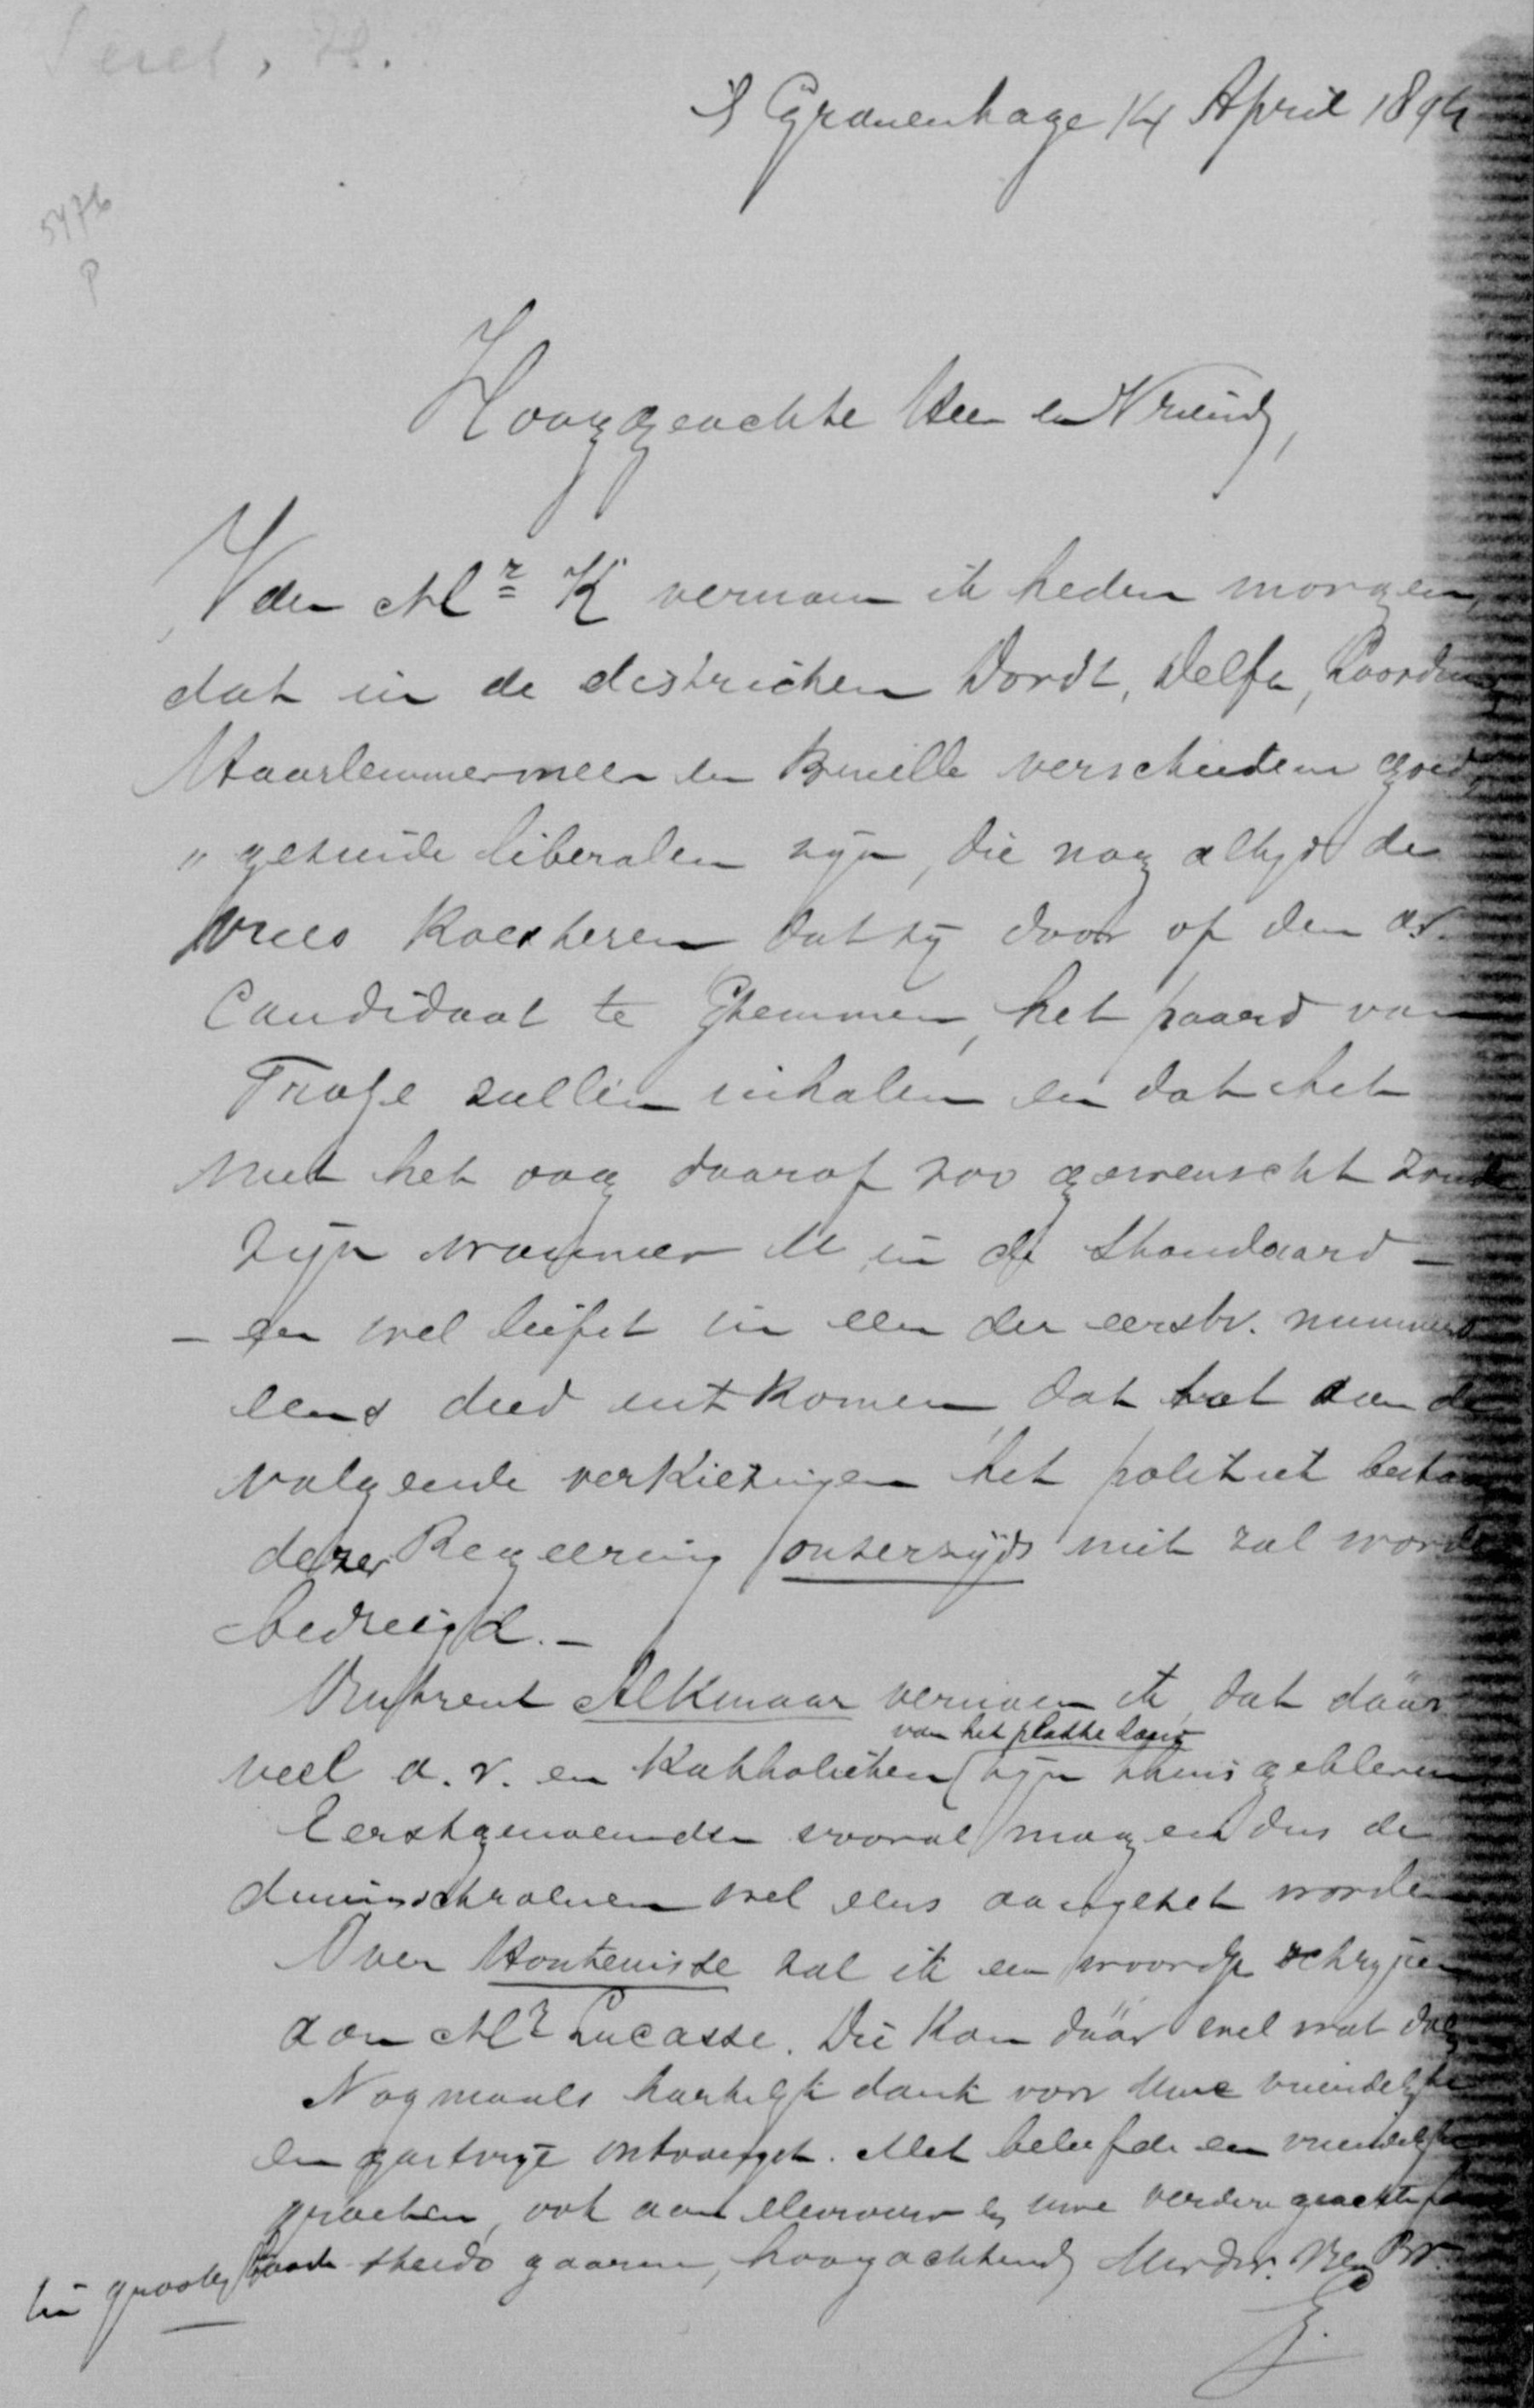 Seret, H.
's Gravenhage 14 April 1894
5476
P
Hooggeachte Heer en Vriend,
Van Mr K vernam ik heden morgen,
dat in de districten Dordt, Delft,
Haarlemmermeer en Brielle verscheidene goed
„ gezinde liberalen zijn, die nog altijd de
vrees koesteren dat zij door op den a.r.
Candidaat te stemmen, het paard van
Troje zullen inhalen en dat het
met het oog daarop zoo gewenscht zoude
zijn wanneer U in de Standaard –
– en wel liefst in een der eerstv. nummers
eens deed uitkomen, dat tot aan de
volgende verkiezingen het politiek bestaan
dezer Regeering onzerzijds niet zal worden
bedreigd. –
Omtrent Alkmaar vernam ik, dat dáár
van het platte land
veel a.r. en Katholieken zijn thuis gebleven
Eerstgenoemden vooral mogen dus de
duimschroeven wel eens aangezet worden
Over Hontenisse zal ik een woordje schrijven
aan Mr Lucasse. Die kan dáár wel wat doen
Nogmaals hartelijk dank voor Uwe vriendelijke
en gastvrije ontvangst. Met beleefde en vriendelijke
groeten, ook aan Mevrouw en uwe verdere geachte
steeds gaarne, hoogachtend Uw dw.
in groote haast